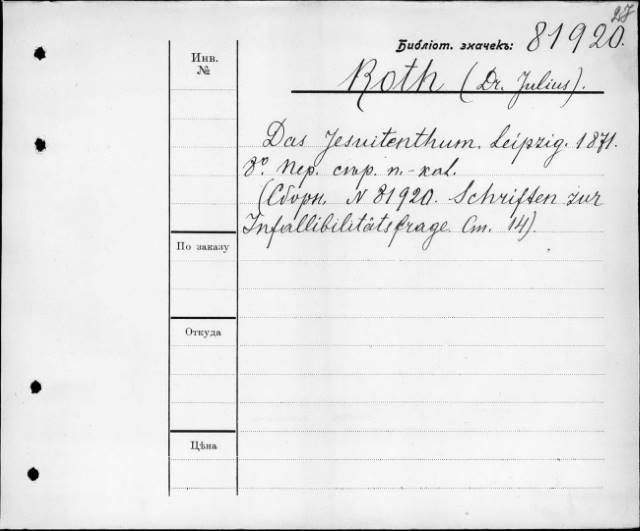 27
Библіот. значекъ: 81920.
Инв.
№
Roth (Dr. Julius).
Das Jesuitenthum. Leipzig. 1871.
8°. Пер. стр. п.-кал.
(Сборн. N 81920. Schriften zur
Infallibilitätsfrage. Ст. 14).
По заказу
Откуда
Цѣна